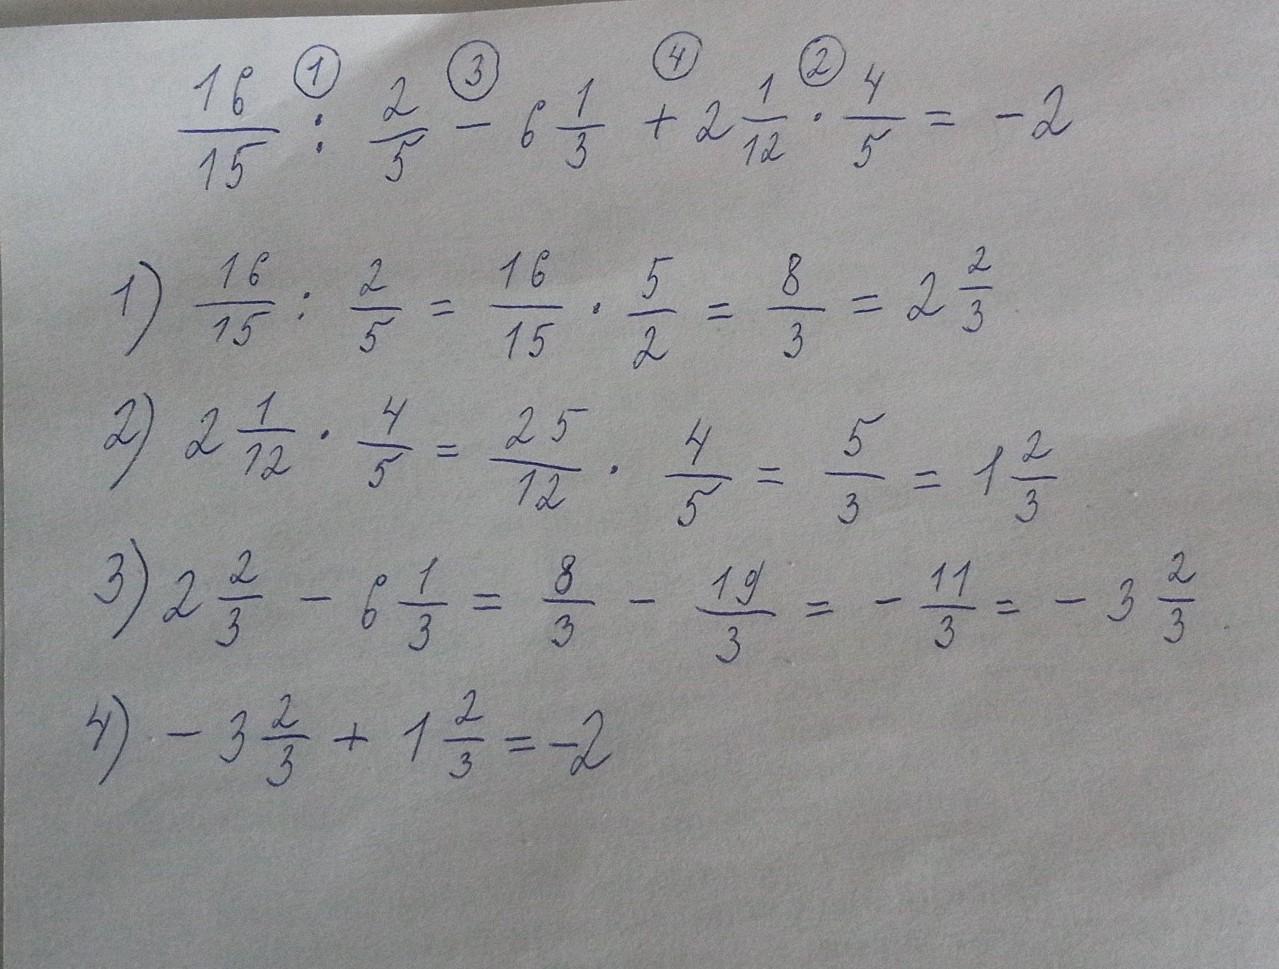 ① ③ ④ ②
16/15 : 2/5 - 6 1/3 + 2 1/12 · 4/5 = -2
1) 16/15 : 2/5 = 16/15 · 5/2 = 8/3 = 2 2/3
2) 2 1/12 · 4/5 = 25/12 · 4/5 = 5/3 = 1 2/3
3) 2 2/3 - 6 1/3 = 8/3 - 19/3 = - 11/3 = - 3 2/3
4) - 3 2/3 + 1 2/3 = -2